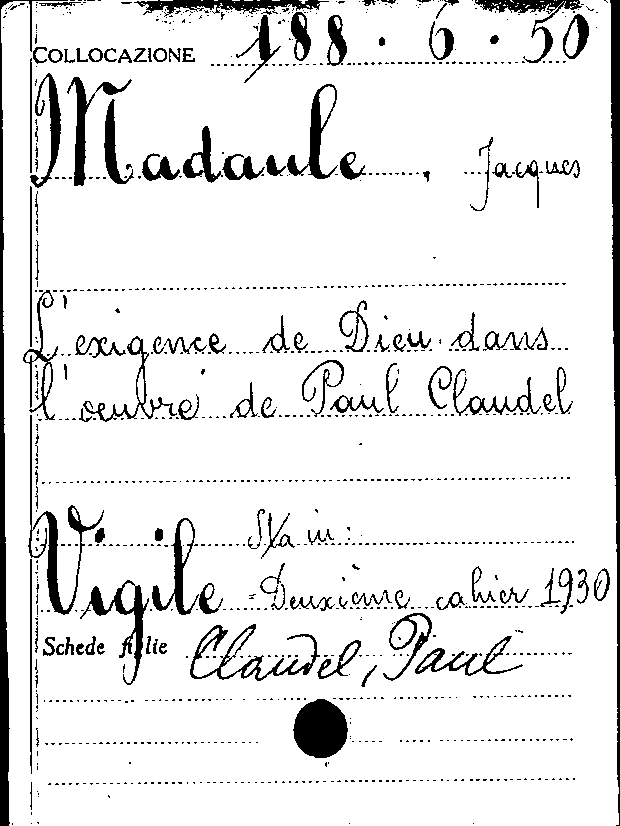 COLLOCAZIONE 188.6.50
Madaule, Jacques
L'exigence de Dieu dans
l'oeuvre de Paul Claudel
Sta in:
Vigile - Deuxième cahier 1930
Schede figlie Claudel, Paul